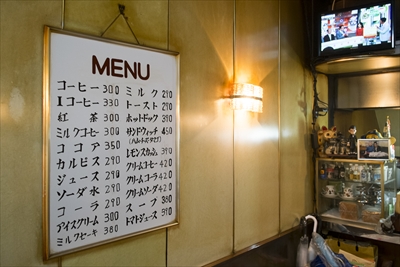 MENU
コーヒー 300
Iコーヒー 330
紅茶 300
ミルクコーヒー 300
ココア 350
カルピス 290
ジュース 290
ソーダ水 290
コーラ 290
アイスクリーム 300
ミルクセーキ 380
ミルク 290
トースト 290
ホットドック 390
サンドウィッチ 450
レモンスカッシュ 390
クリームコーヒー 420
クリームコーラ 420
クリームソーダ 420
スープ 350
トマトジュース 590